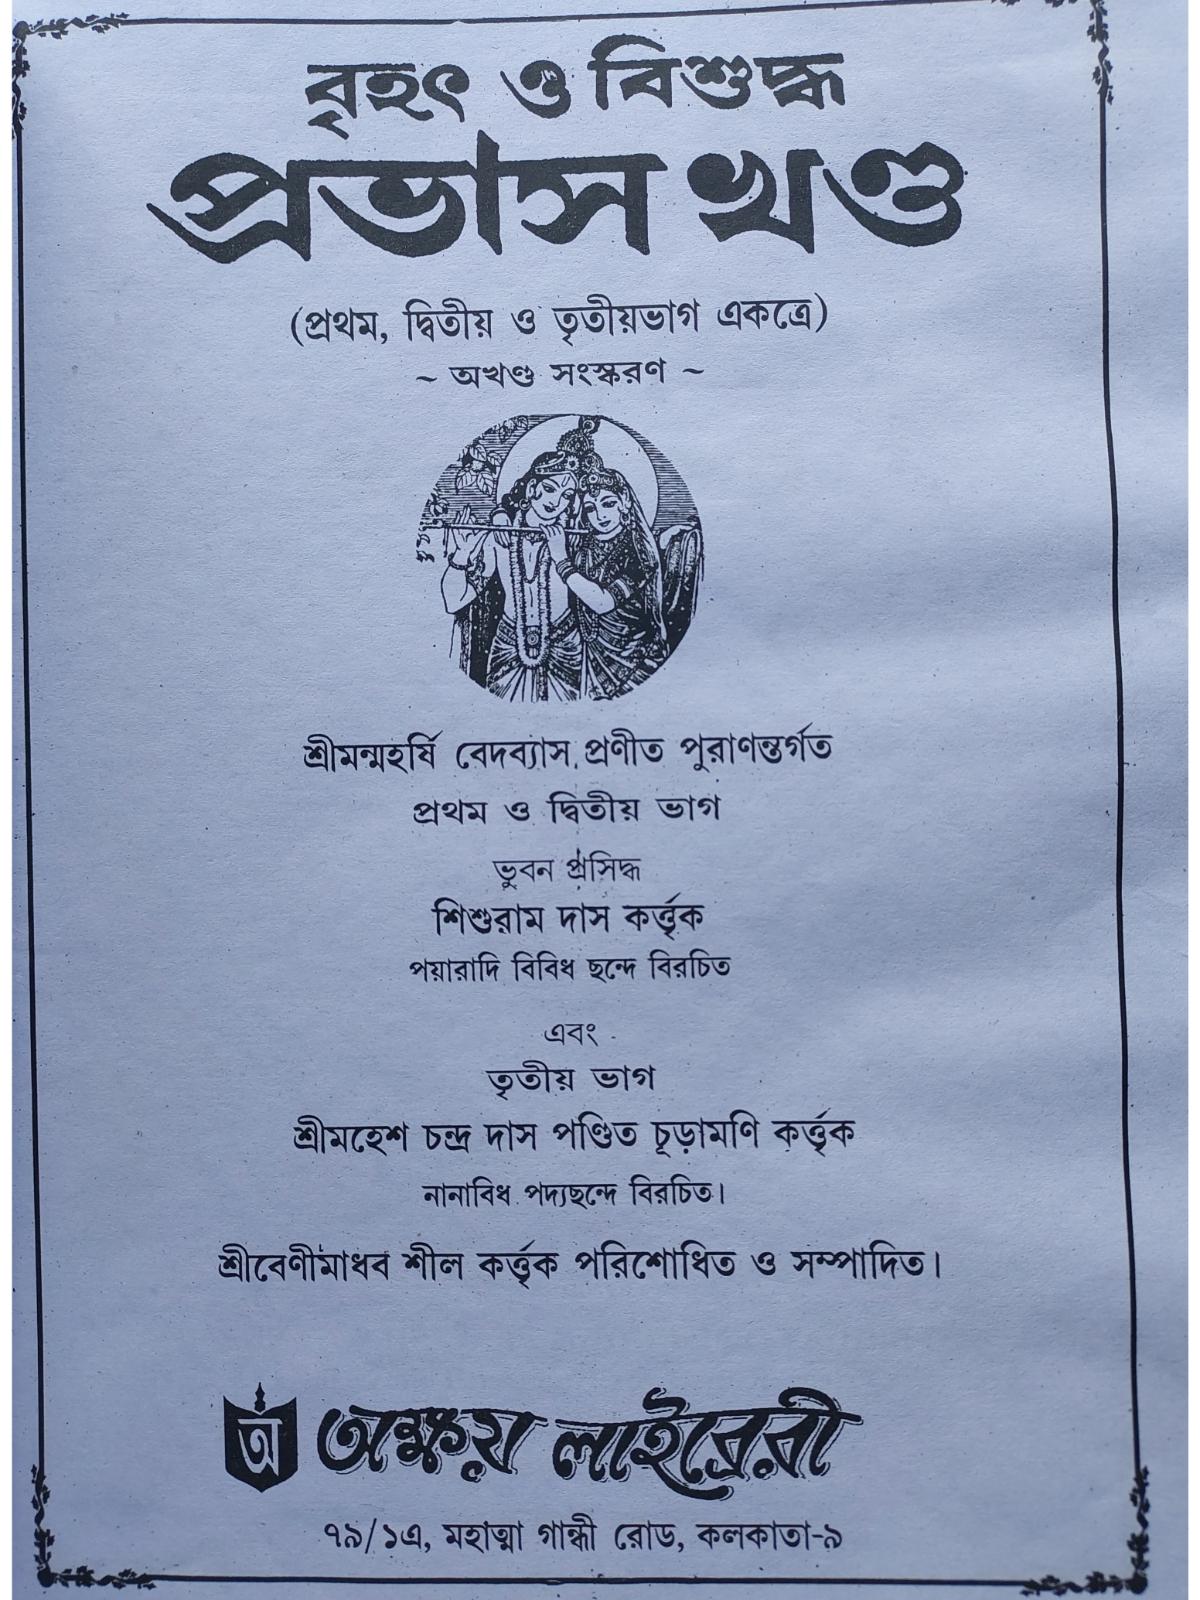 বৃহৎ ও বিশুদ্ধ
প্রভাস খণ্ড
(প্রথম, দ্বিতীয় ও তৃতীয়ভাগ একত্রে)
~ অখণ্ড সংস্করণ ~
শ্রীমন্মহর্ষি বেদব্যাস প্রণীত পুরাণন্তর্গত
প্রথম ও দ্বিতীয় ভাগ
ভুবন প্রসিদ্ধ
শিশুরাম দাস কর্ত্তৃক
পয়ারাদি বিবিধ ছন্দে বিরচিত
এবং
তৃতীয় ভাগ
শ্রীমহেশ চন্দ্র দাস পণ্ডিত চূড়ামণি কর্ত্তৃক
নানাবিধ পদ্যছন্দে বিরচিত।
শ্রীবেণীমাধব শীল কর্ত্তৃক পরিশোধিত ও সম্পাদিত।
অ অক্ষয় লাইব্রেরী
৭৯/১এ, মহাত্মা গান্ধী রোড, কলকাতা-৯